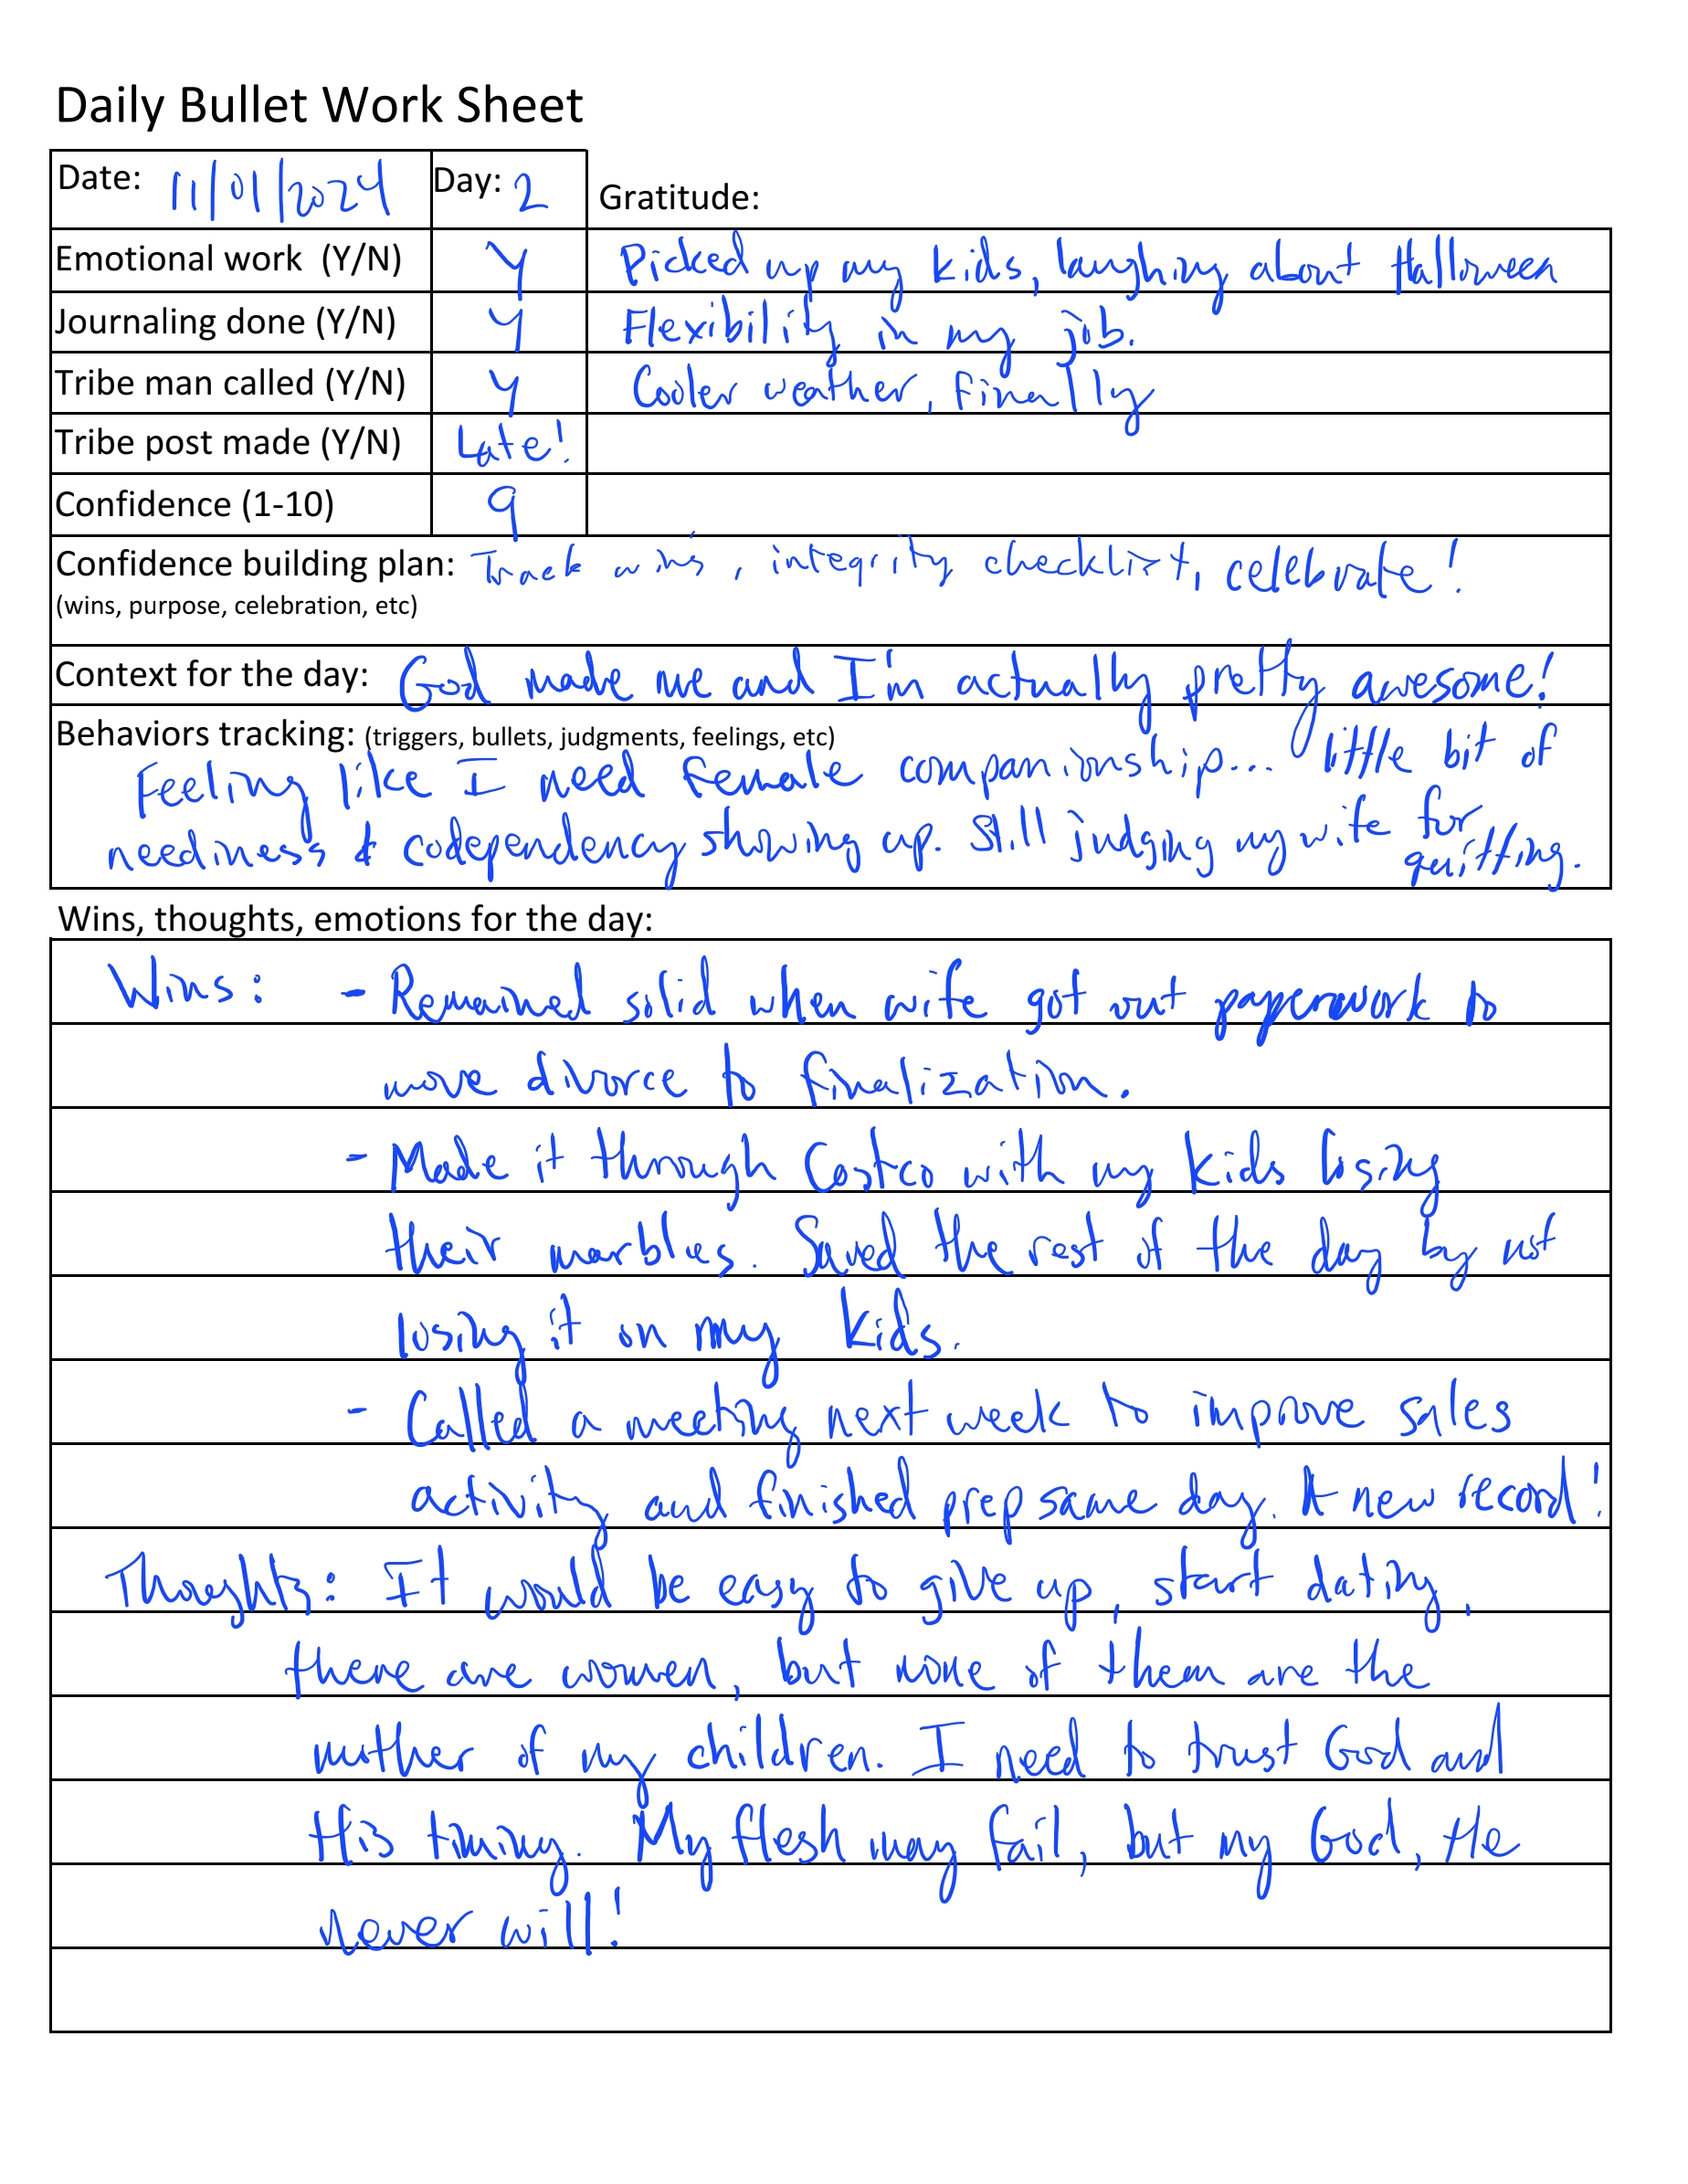 Daily Bullet Work Sheet
Date: 11/01/2024 Day: 2 Gratitude:
Emotional work (Y/N) Y Picked up my kids, laughing about Halloween
Journaling done (Y/N) Y Flexibility in my job.
Tribe man called (Y/N) Y Cooler weather, finally
Tribe post made (Y/N) Late!
Confidence (1-10) 9
Confidence building plan: Track wins, integrity checklist, celebrate!
(wins, purpose, celebration, etc)
Context for the day: God made me and I'm actually pretty awesome!
Behaviors tracking: (triggers, bullets, judgments, feelings, etc)
Feeling like I need female companionship... little bit of
neediness & codependency showing up. Still judging my wife for
quitting.
Wins, thoughts, emotions for the day:
Wins: - Remained solid when wife got out paperwork to
move divorce to finalization.
- Made it through Costco with my kids losing
their marbles. Saved the rest of the day by not
losing it on my kids.
- Called a meeting next week to improve sales
activity and finished prep same day. A new record!
Thoughts: It would be easy to give up, start dating,
there are women, but none of them are the
mother of my children. I need to trust God and
His timing. My flesh may fail, but my God, He
never will!